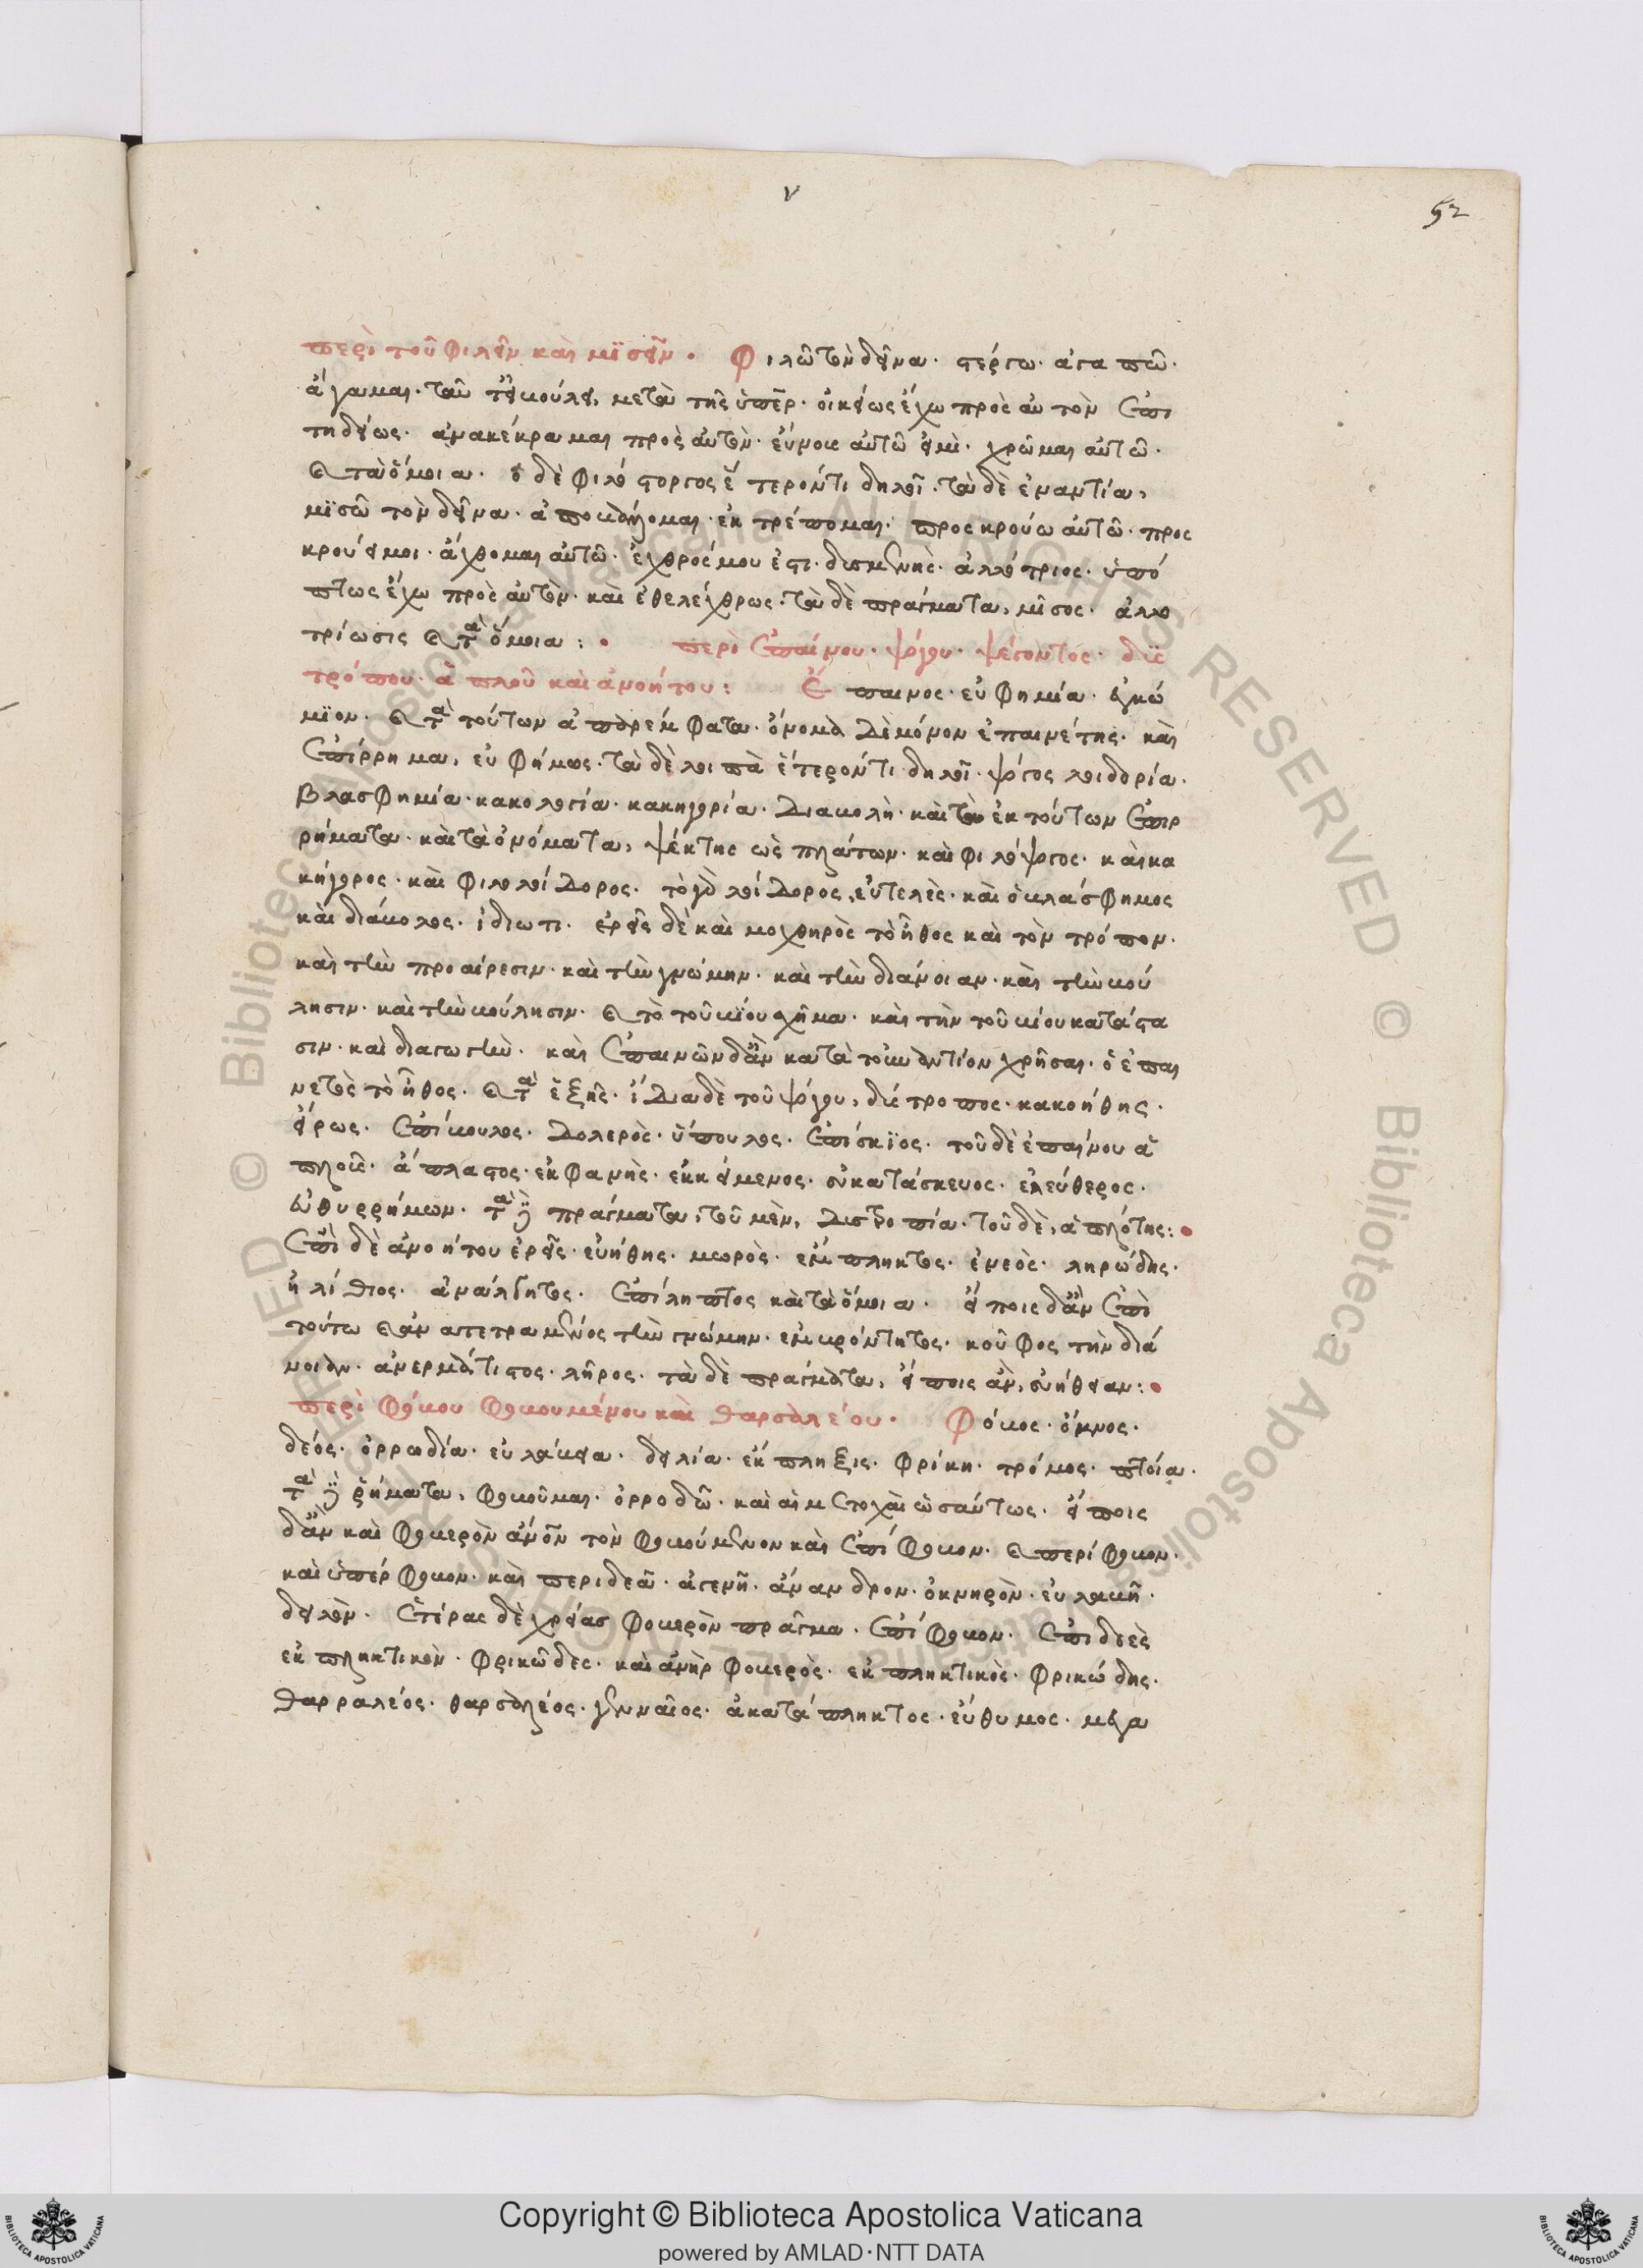 ν
52
περὶ τοῦ φιλεῖν καὶ μϊσεῖν. Φιλῶ τὸν δεῖνα. στέργω. ἀγαπῶ.
ἄγαμαι. μετὰ τῆς ὑπὲρ. οἰκείως ἔχω πρὸς αὐτὸν ἐπι
τηδείως. ἀνακέκραμαι πρὸς αὐτόν. εὔνους αὐτῷ εἰμὶ. χρῶμαι αὐτῷ.
καὶ τὰ ὅμοια. ὁ δὲ φιλόστοργος ἕτερόν τι δηλοῖ. τὰ δὲ ἐναντία,
μϊσῶ τὸν δεῖνα. ἀποβδύομαι. ἐκτρέπομαι. προσκρούω αὐτῷ. προσ
κρούει μοι. ἄχθομαι αὐτῷ. ἐχθρός μου ἐστι. δυσμενής. ἀλλότριος. ὑπό
πτως ἔχω πρὸς αὐτόν. καὶ ἐθελέχθρως. τὰ δὲ πράγματα, μῖσος. ἀλλο
τρίωσις καὶ τὰ ὅμοια:
περὶ ἐπαίνου. ψόγου. ψέγοντος. δυσ
τρόπου. ἁπλοῦ καὶ ἀνοήτου: Ἔπαινος. εὐφημία. ἐγκώ
μϊον. καὶ τὰ τούτων ἀπαρέμφατα. ὄνομα δὲ μόνον ἐπαινέτης. καὶ
ἐπίρρημα, εὐφήμως. τὰ δὲ λοιπὰ ἕτερόν τι δηλοῖ. ψόγος λοιδορία.
βλασφημία. κακολογία. κακηγορία. διαβολὴ. καὶ τὰ ἐκ τούτων ἐπιρ
ρήματα. καὶ τὰ ὀνόματα, ψέκτης ὡς πλάτων. καὶ φιλόψογος. καὶ κα
κήγορος. καὶ φιλολοίδορος. τὸ γὰρ λοίδορος, εὐτελές. καὶ ὁ βλάσφημος
καὶ διάβολος. ἰδιωτι. ἐρεῖς δὲ καὶ μοχθηρὸς τὸ ἦθος καὶ τὸν τρόπον.
καὶ τὴν προαίρεσιν. καὶ τὴν γνώμην. καὶ τὴν διάνοιαν. καὶ τὴν βού
λησιν. καὶ τὴν βούλησιν. καὶ τὸ τοῦ βίου σχῆμα. καὶ τὴν τοῦ βίου κατάστα
σιν. καὶ διαγωγήν. καὶ ἐπαινῶν δἂν κατὰ τοὐναντίον χρῆσαι. ὁ ἐπαι
νετὸς τὸ ἦθος. καὶ τὰ ἑξῆς. ἴδια δὲ τοῦ ψόγου, δύστροπος. κακοήθης.
εἴρων. ἐπίβουλος. δολερός. ὕπουλος. ἐπίσκϊος. τοῦ δὲ ἐπαίνου ἁ
πλοῦς. ἄπλαστος. ἐκφανής. ἐκκείμενος. οὐκατάσκευος. ἐλεύθερος.
εὐθυρρήμων. τὰ δὲ πράγματα, τοῦ μὲν, δυστροπία. τοῦ δὲ, ἁπλότης:
ἐπὶ δὲ ἀνοήτου ἐρεῖς. εὐήθης. μωρὸς. ἐμπληκτος. ἐνεὸς. ληρώδης.
ἠλίθιος. ἀναίσθητος. ἐπίληπτος καὶ τὰ ὅμοια. εἴποις δἂν ἐπὶ
τούτω παρατετραμμένος τὴν γνώμην. ἐμβρόντητος. κοῦφος τὴν διά
νοιαν. ἀνερμάτιστος. λῆρος. τὰ δὲ πράγματα, εἴποις ἂν, εὐήθειαν:
περὶ φόβου φοβουμένου καὶ θαρσαλέου. Φόβος. ὄκνος.
δεός. ὀρρωδία. εὐλάβεια. δειλία. ἔκπληξις. φρίκη. τρόμος. πτοία.
τὰ δὲ ῥήματα, φοβοῦμαι. ὀρροδῶ. καὶ αἱ μετοχαὶ ὡσαύτως. εἴποις
δἂν καὶ φοβερὸν τὸν φοβούμενον καὶ ἐπίφοβον. καὶ περίφοβον.
καὶ ὑπέρφοβον. καὶ περιδεᾶ. ἀγενῆ. ἄνανδρον. ὀκνηρὸν. εὐλαβῆ.
δειλὸν. ἑτέρας δὲ χρείας φοβερὸν πρᾶγμα. ἐπίφοβον. ἐπιδεὲς
ἐκπληκτικὸν. φρικῶδες. καὶ ἀνὴρ φοβερὸς. ἐκπληκτικὸς. φρικώδης.
θαρραλέος. θαρσαλέος. γενναῖος. ἀκατάπληκτος. εὔθυμος. μεγα
© Biblioteca Apostolica Vaticana ALL RIGHTS RESERVED
Copyright © Biblioteca Apostolica Vaticana
powered by AMLAD·NTT DATA
BIBLIOTECA APOSTOLICA VATICANA
BIBLIOTECA APOSTOLICA VATICANA